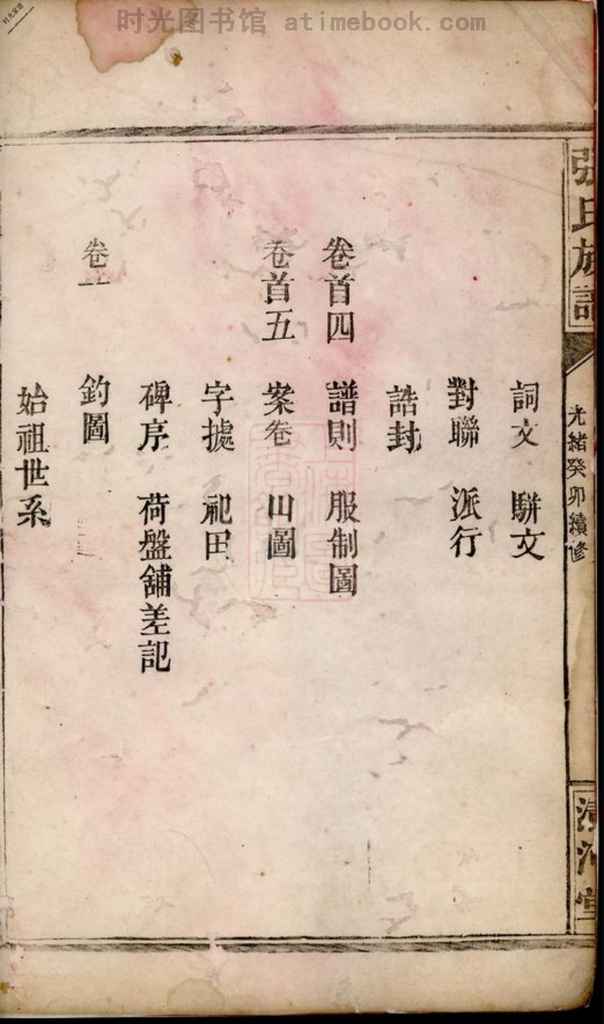 时光图书馆 atimebook.com
張氏族譜
光緒癸卯續修
清河堂
詞文 駢文
對聯 派行
誥封
卷首四 譜則 服制圖
卷首五 案卷 山圖
字據 祀田
碑序 荷盤舖差記
卷一 釣圖
始祖世系